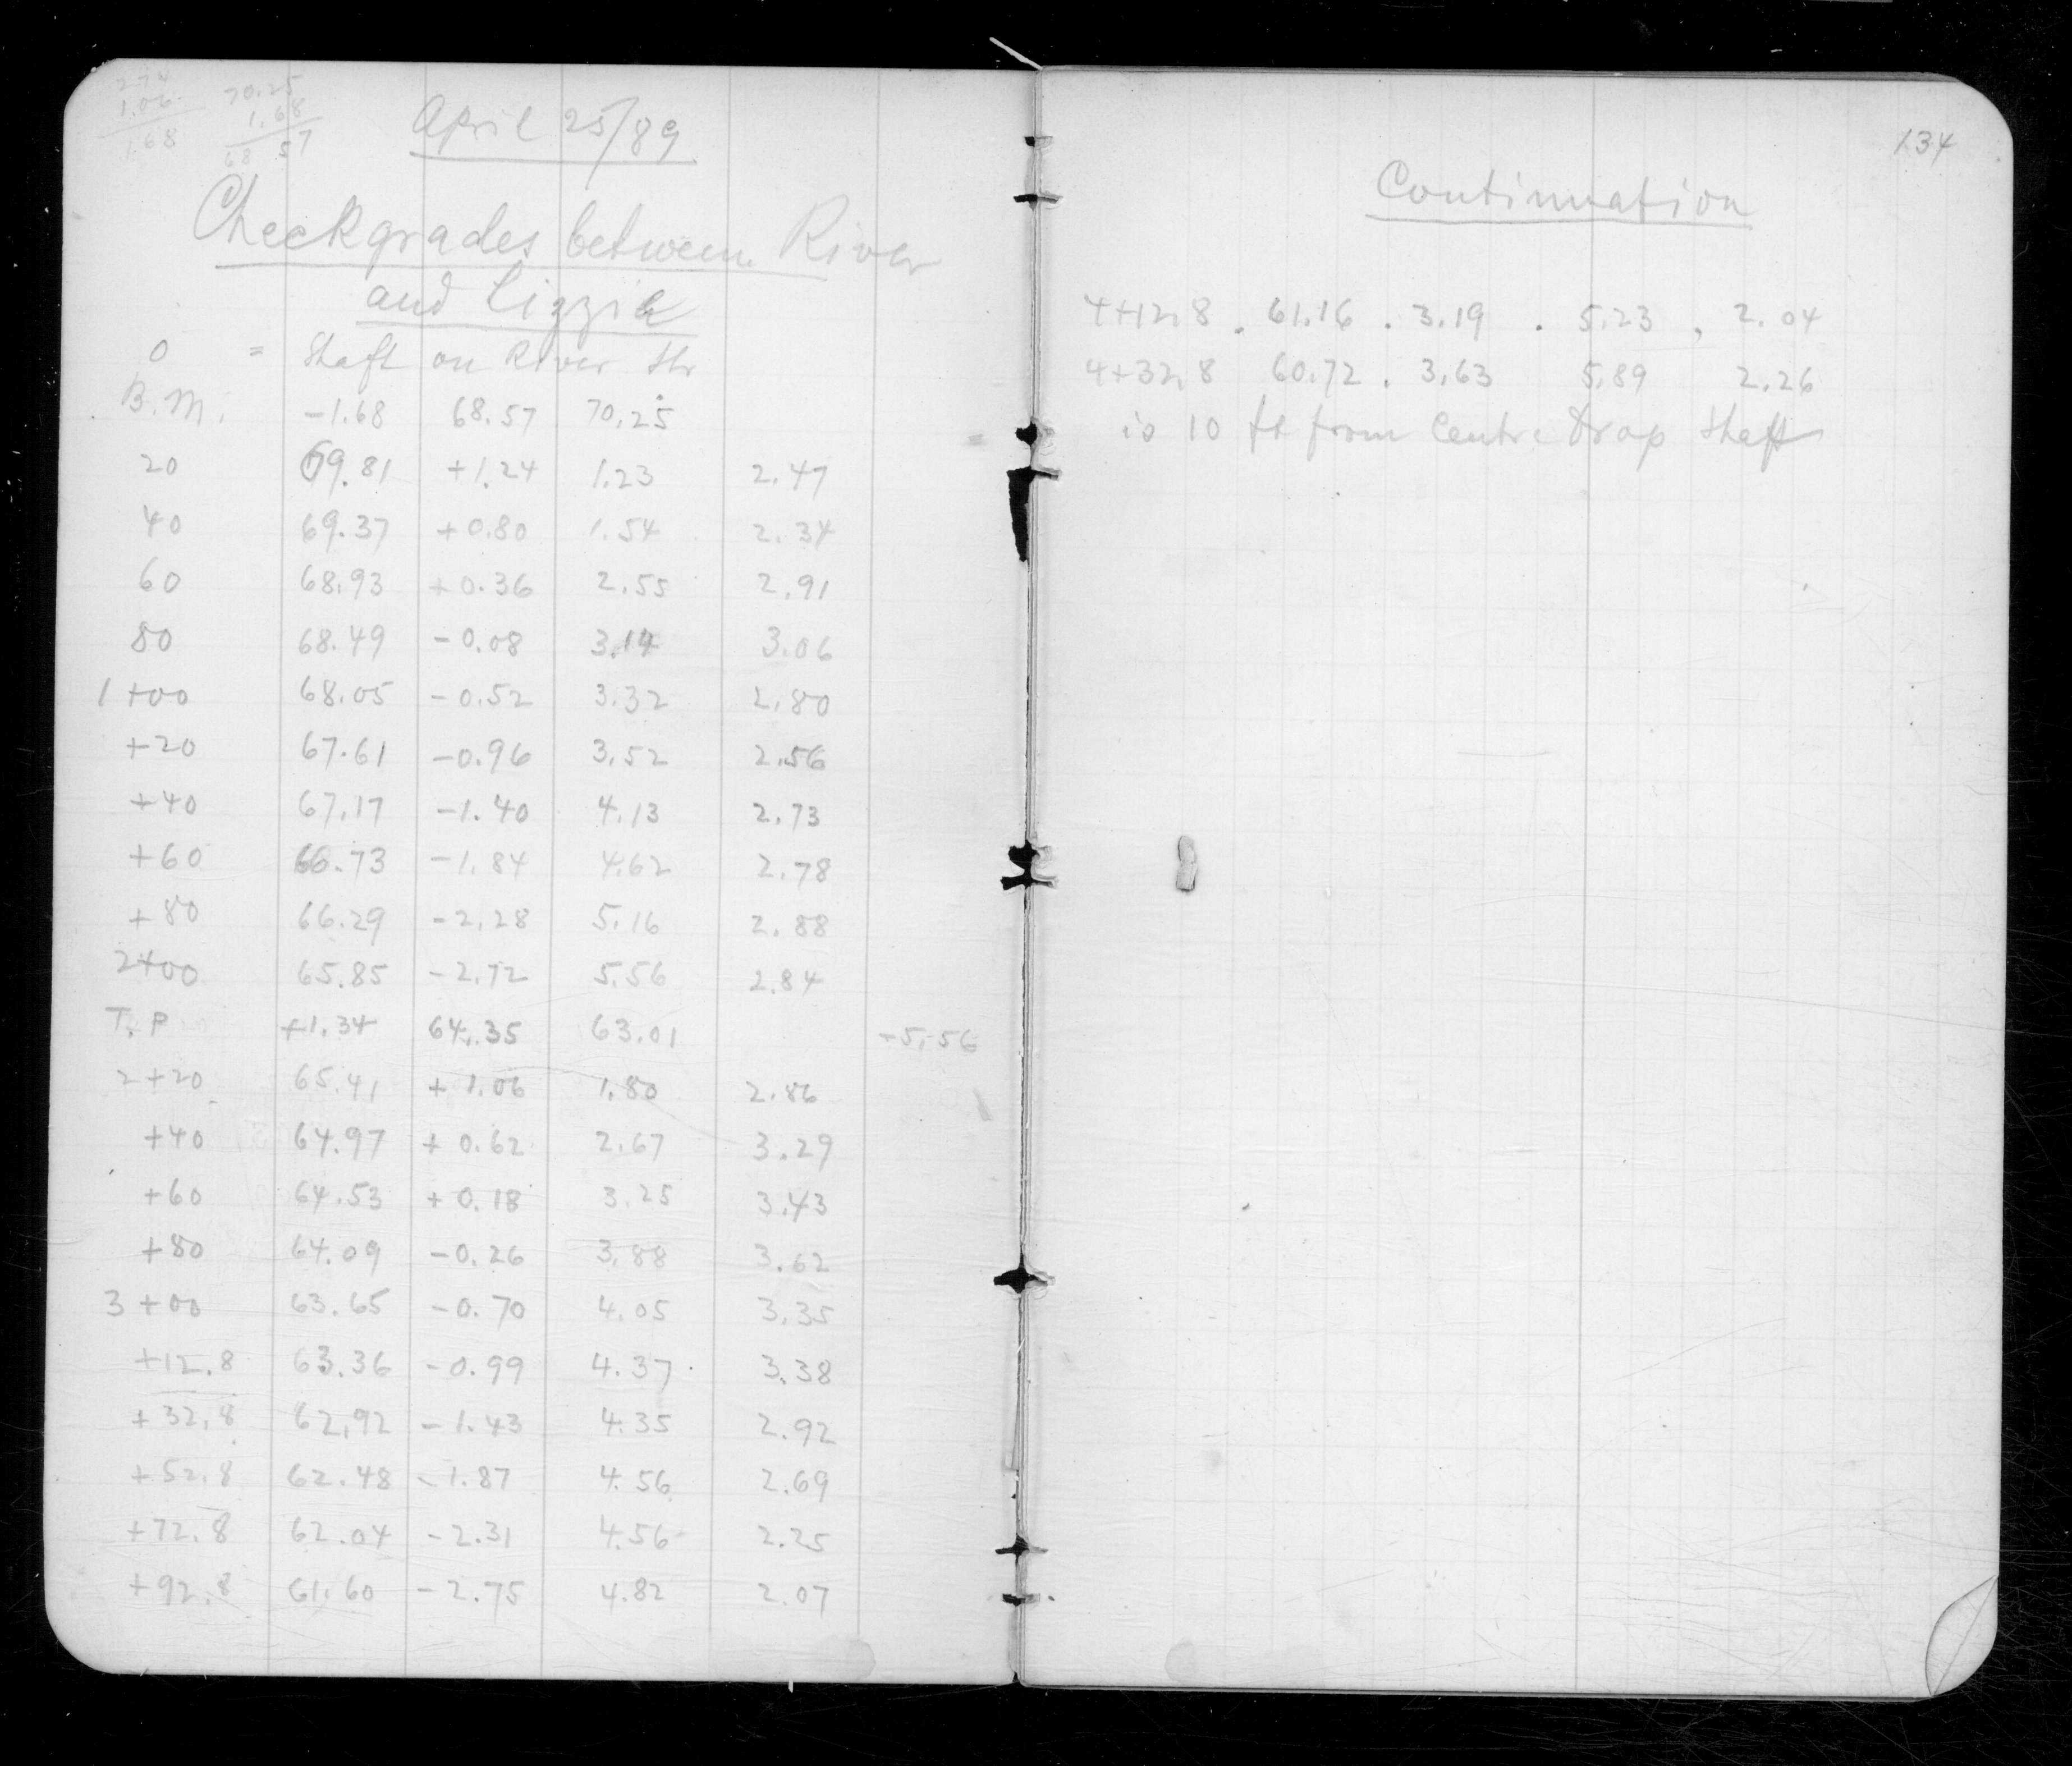 2.74
1.06
1.68
70.25
1.68
68 57
April 25/89
Checkgrades between River
and Lizzie
0 = Shaft on River Str
B.M. -1.68 68.57 70.25
20 69.81 +1.24 1.23 2.47
40 69.37 +0.80 1.54 2.34
60 68.93 +0.36 2.55 2.91
80 68.49 -0.08 3.14 3.06
1+00 68.05 -0.52 3.32 2.80
+20 67.61 -0.96 3.52 2.56
+40 67.17 -1.40 4.13 2.73
+60 66.73 -1.84 4.62 2.78
+80 66.29 -2.28 5.16 2.88
2+00 65.85 -2.72 5.56 2.84
T.P +1.34 64.35 63.01 -5.56
2+20 65.41 +1.06 1.80 2.86
+40 64.97 +0.62 2.67 3.29
+60 64.53 +0.18 3.25 3.43
+80 64.09 -0.26 3.88 3.62
3+00 63.65 -0.70 4.05 3.35
+12.8 63.36 -0.99 4.37 3.38
+32.8 62.92 -1.43 4.35 2.92
+52.8 62.48 -1.87 4.56 2.69
+72.8 62.04 -2.31 4.56 2.25
+92.8 61.60 -2.75 4.82 2.07
134
Continuation
4+12.8 . 61.16 . 3.19 . 5.23 , 2.04
4+32.8 60.72 . 3.63 5.89 2.26
is 10 ft from Centre Drop Shaft